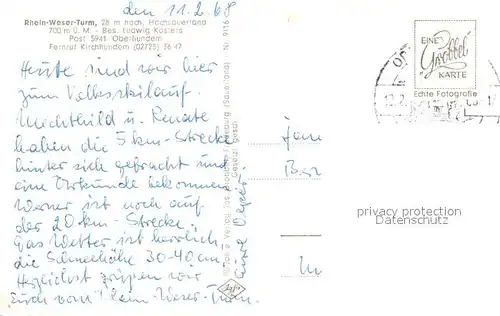 den 11.2.68
Rhein-Weser-Turm, 28 m hoch, Hochsauerland
700 m ü. M. - Bes. Ludwig Kösters
Post 5941 Oberhundem
Fernruf Kirchhundem (02725) 36 47
Heute sind wir hier
zum Volksskilauf.
Mechthild u. Renate
haben die 5 km-Strecke
hinter sich gebracht und
eine Urkunde bekommen
Werner ist noch auf
der 20 km-Strecke.
Das Wetter ist herrlich,
die Schneehöhe 30-40 cm.
Herzlichst grüßen wir
Euch vom Rhein-Weser-Turm.
Gesetzl. gesch.
EINE
Grobbel
KARTE
Echte Fotografie
privacy protection
Datenschutz